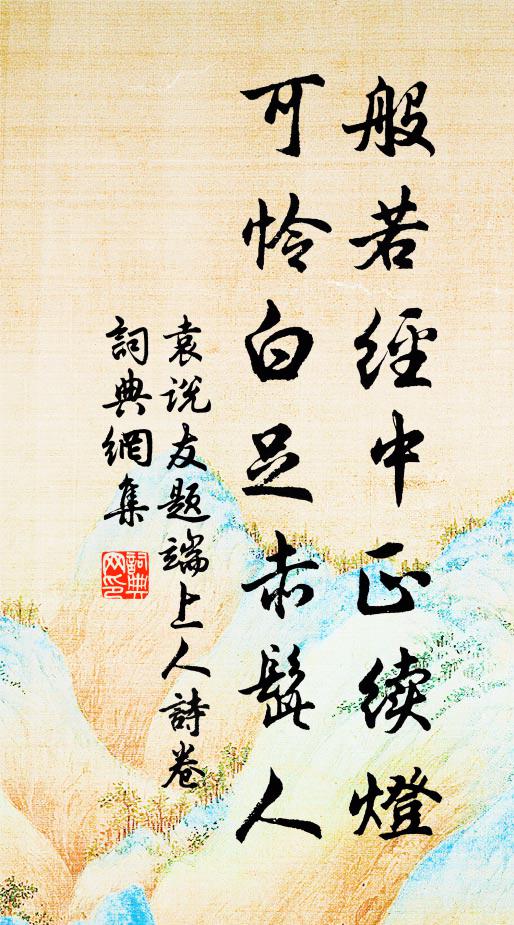 般若經中正续燈
可怜白足赤髭人
袁说友题端上人詩卷
詞典網集
詞典网印